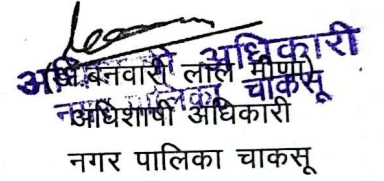 अधिशाषी अधिकारी
नगर पालिका चाकसू
(बनवारी लाल मीणा)
अधिशाषी अधिकारी
नगर पालिका चाकसू